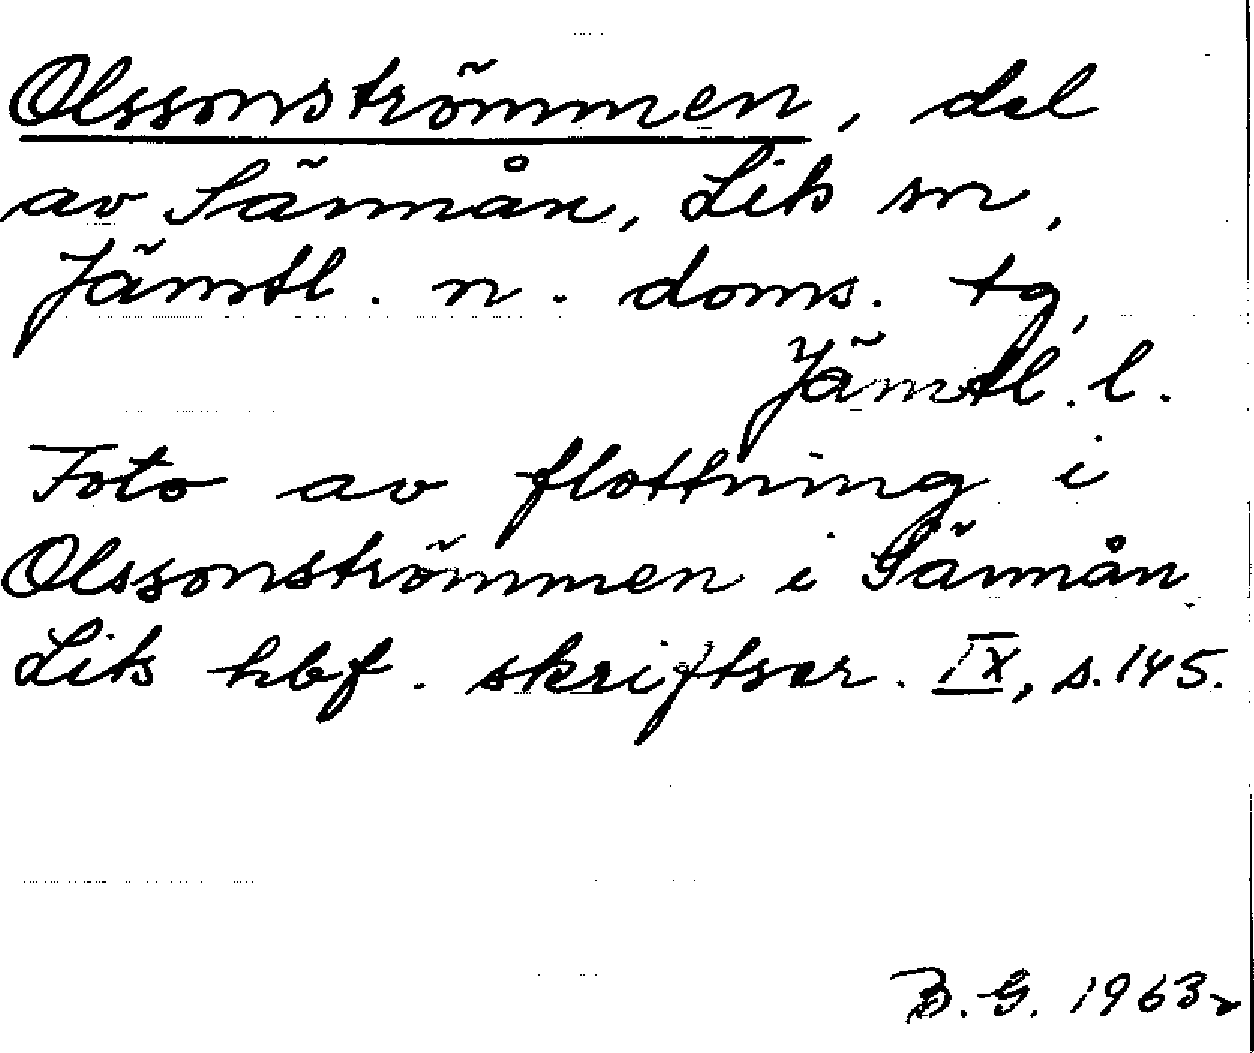 Olssonströmmen, del
av Sännån, Lits sn,
Jämtl. n. doms. tg,
Jämtl. l.
Foto av flottning i
Olssonströmmen i Sännån
Lits hbf. skriftser. IX, s. 145.
B. G. 1963